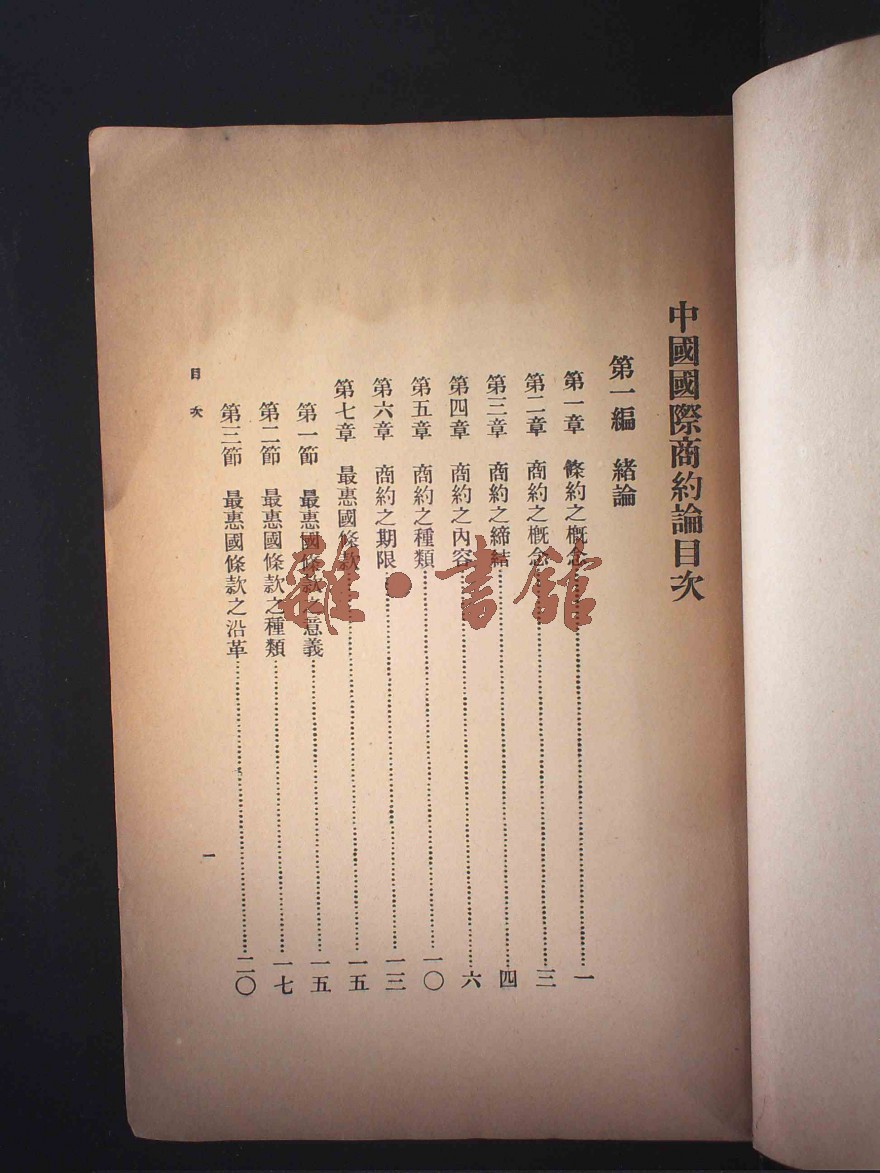 中國國際商約論目次
第一編　緒論
第一章　條約之槪念……………………一
第二章　商約之槪念……………………三
第三章　商約之締結……………………四
第四章　商約之內容……………………六
第五章　商約之種類……………………一〇
第六章　商約之期限……………………一三
第七章　最惠國條款……………………一五
第一節　最惠國條款之意義……………………一五
第二節　最惠國條款之種類……………………一七
第三節　最惠國條款之沿革……………………二〇
目次
一
雜·書館